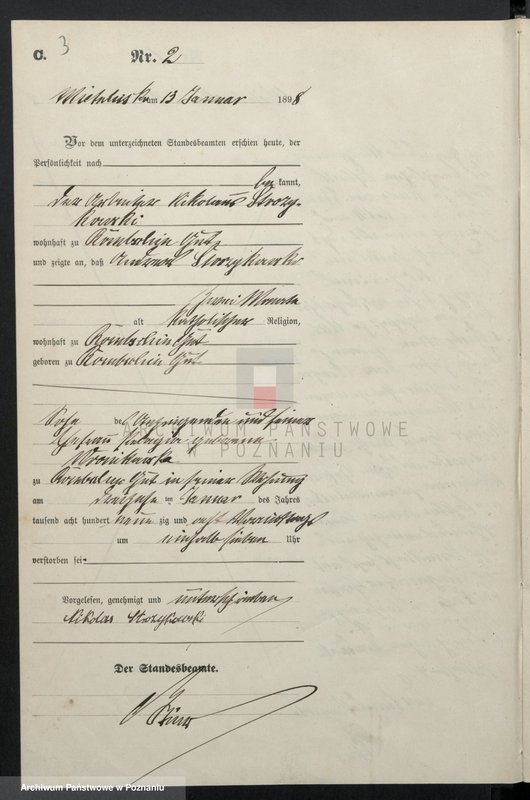 C. 3 Nr. 2
am 13 Januar 1898
Vor dem unterzeichneten Standesbeamten erschien heute, der
Persönlichkeit nach
be kannt,
der Arbeiter Nikolaus Strozy-
kowski
wohnhaft zu Rombschin Gut,
und zeigte an, daß Andreas
zwei Monate
alt katholischer Religion,
wohnhaft zu Rombschin Gut
geboren zu Rombschin Gut
Sohn des Anzeigenden und seiner
Ehefrau geborene
zu Rombschin Gut in seiner Wohnung
am ten Januar des Jahres
tausend acht hundert neun zig und acht Vormittags
um einhalb sieben Uhr
verstorben sei
Vorgelesen, genehmigt und unterschrieben
Nikolas Strzykowski
Der Standesbeamte.
ARCHIWUM PAŃSTWOWE
W POZNANIU
Archiwum Państwowe w Poznaniu